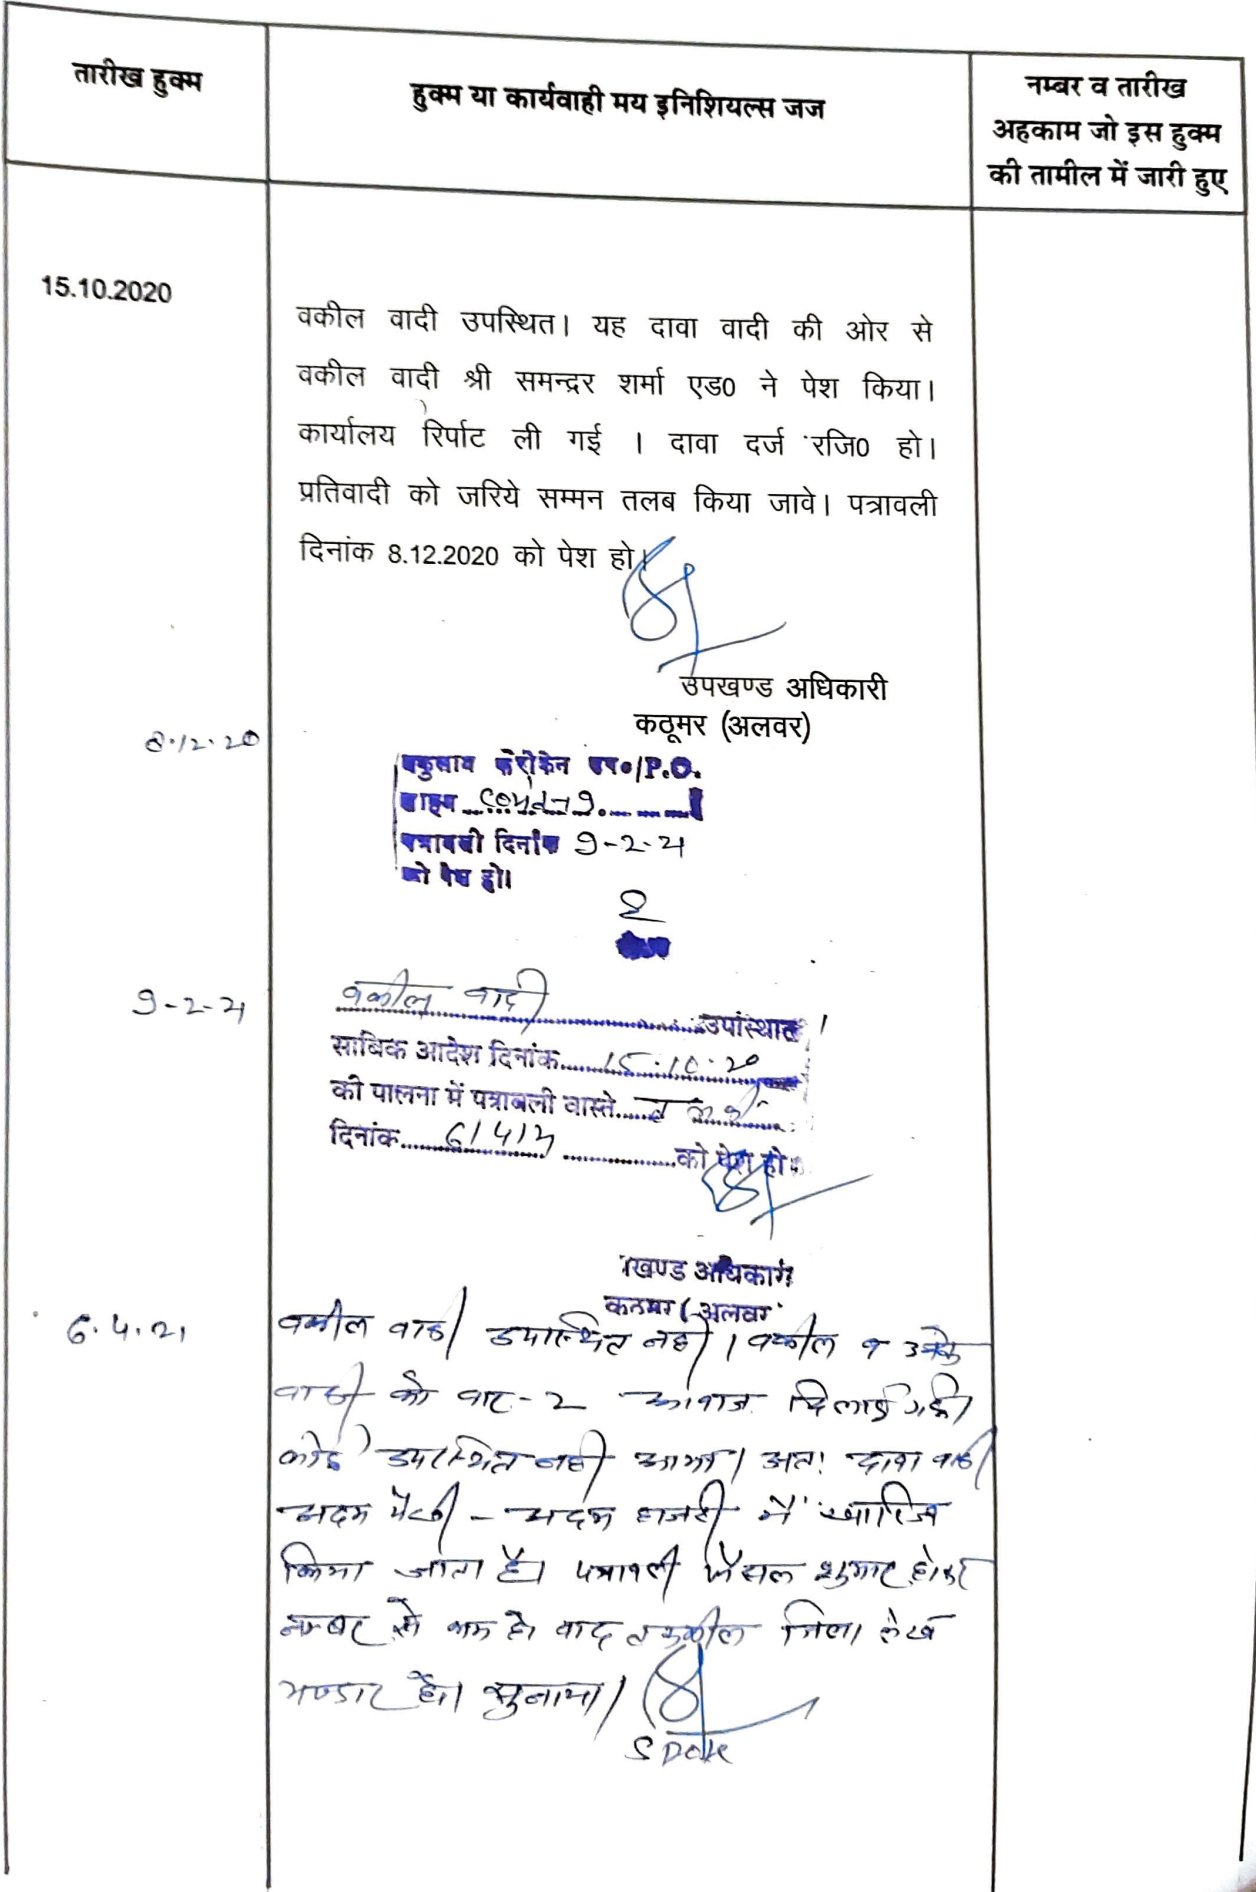 तारीख हुक्म
हुक्म या कार्यवाही मय इनिशियल्स जज
नम्बर व तारीख
अहकाम जो इस हुक्म
की तामील में जारी हुए
15.10.2020
वकील वादी उपस्थित। यह दावा वादी की ओर से
वकील वादी श्री समन्द्रर शर्मा एड0 ने पेश किया।
कार्यालय रिर्पाट ली गई । दावा दर्ज रजि0 हो।
प्रतिवादी को जरिये सम्मन तलब किया जावे। पत्रावली
दिनांक 8.12.2020 को पेश हो।
उपखण्ड अधिकारी
कठूमर (अलवर)
8.12.20
P.O.
पत्रावली दिनांक 9-2-21
को पेश हो।
9-2-21
वकील वादी उपस्थित।
साबिक आदेश दिनांक 15.10.20
की पालना में पत्रावली वास्ते
दिनांक 6/4/21 को पेश हो
खण्ड अधिकारी
कठूमर (अलवर
6.4.21
वकील वादी उपस्थित नही। वकील व उनके
वादी को बार-2 आवाज दिलाई गई।
कोई उपस्थित नही आया। अतः दावा वादी
अदम पैरवी - अदम हाजरी में खारिज
किया जाता है। पत्रावली फैसल शुमार होकर
नम्बर से कम हो बाद तकमील जिला लेख
भण्डार हो। सुनाया।